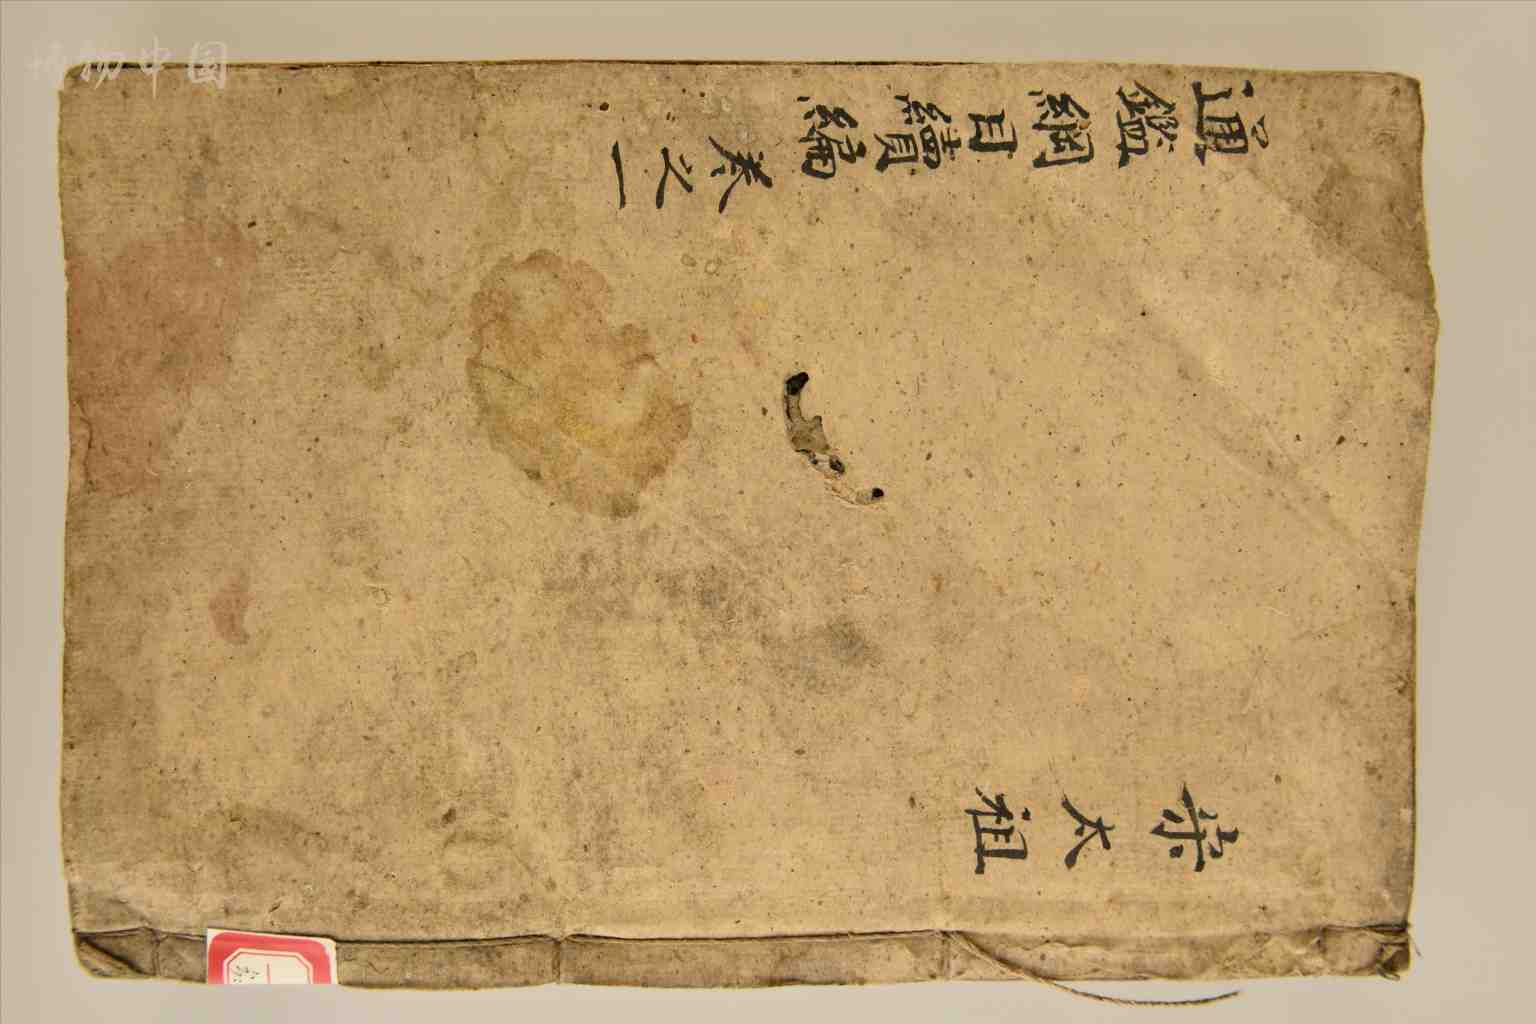 通鑑綱目續編卷之一
宋太祖
博物中国